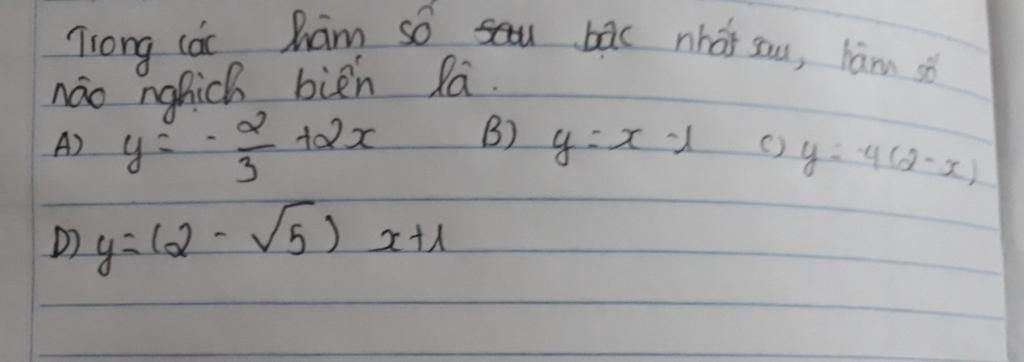 Trong các hàm số sau bậc nhất sau, hàm số
nào nghịch biến là.
A) y = -2/3 + 2x B) y = x - 1 C) y = -4(2 - x)
D) y = (2 - √5) x + 1